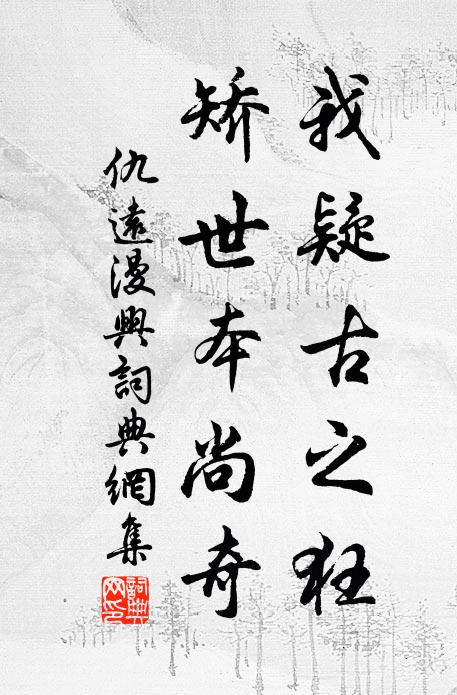 我疑古之狂
矯世本尚奇
仇遠漫興詞典網集
詞典網印